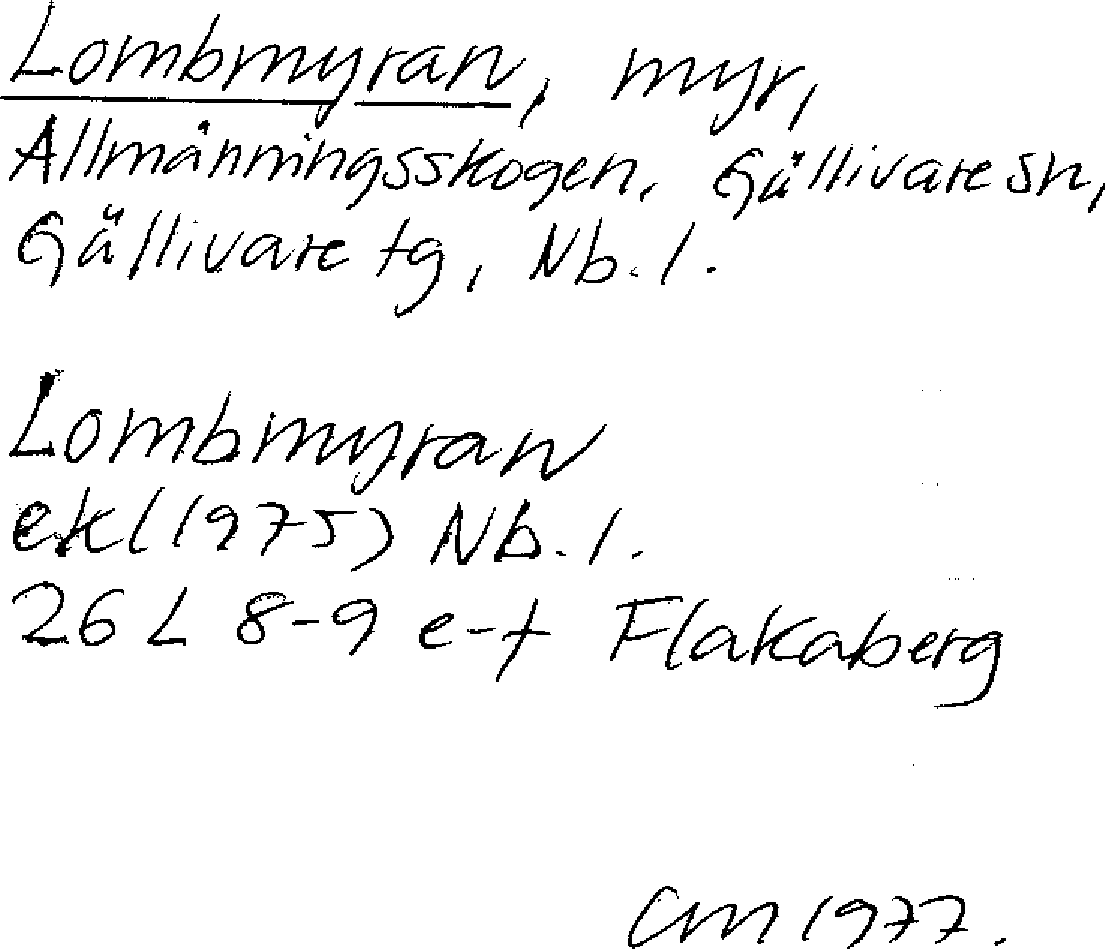 Lombmyran, myr,
Allmänningsskogen, Gällivare sn,
Gällivare tg, Nb. l.
Lombmyran
ek (1975) Nb. l.
26 L 8-9 e-f Flakaberg
CM 1977.